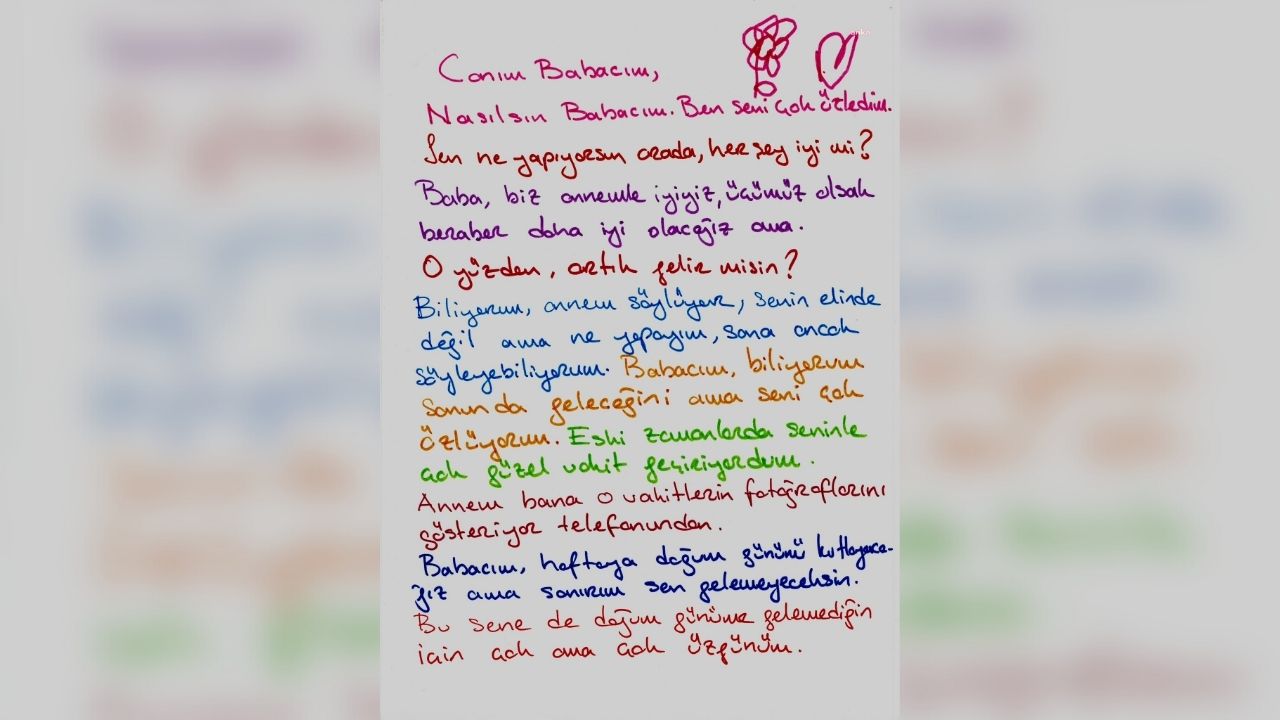 Canım Babacım,
Nasılsın Babacım. Ben seni çok özledim.
Sen ne yapıyorsun orada, her şey iyi mi?
Baba, biz annemle iyiyiz, üçümüz olsak
beraber daha iyi olacağız ama.
O yüzden, artık gelir misin?
Biliyorum, annem söylüyor, senin elinde
değil ama ne yapayım, sana ancak
söyleyebiliyorum. Babacım, biliyorum
sonunda geleceğini ama seni çok
özlüyorum. Eski zamanlarda seninle
çok güzel vakit geçiriyordum.
Annem bana o vakitlerin fotoğraflarını
gösteriyor telefonundan.
Babacım, haftaya doğum günümü kutlayaca-
ğız ama sanırım sen gelemeyeceksin.
Bu sene de doğum günüme gelemediğin
için çok ama çok üzgünüm.